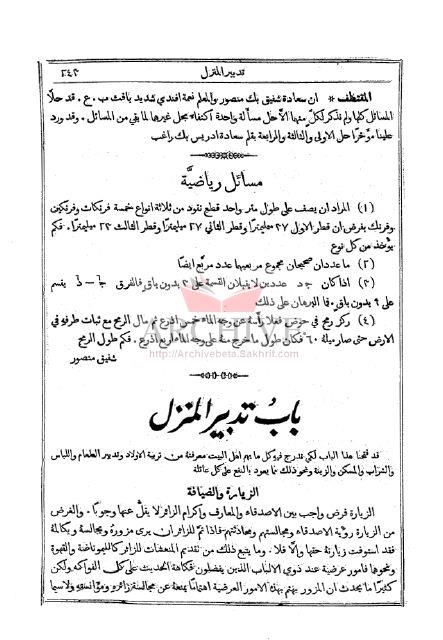 تدبير المنزل ٢٤٣
المقتطف * ان سعادة شفيق بك منصور والمعلم نعمة افندي شديد يافث ب. ع. قد حلا
المسائل كلها ولم نذكر لكل منهما الا حل مسألة واحدة اكتفاء بحل غيرها لما بقي من المسائل. وقد ورد
علينا مؤخرا حل الاولى والثالثة والرابعة بقلم سعادة ادريس بك راغب
مسائل رياضية
(١) المراد ان يصف على طول متر واحد قطع نقود من ثلاثة انواع خمسة فرنكات وفرنكين
وفرنك بفرض ان قطر الاول ٣٧ مليمترا وقطر الثاني ٢٧ مليمترا وقطر الثالث ٢٣ مليمترا. فكم
يؤخذ من كل نوع
(٢) ما عددان صحيحان مجموع مربعيهما عدد مربع ايضا
(٣) اذا كان ج د عددين لا يقبلان القسمة على ٣ بدون باق فالفرق ج – د يقسم
على ٩ بدون باق. فما البرهان على ذلك
(٤) ركز رمح في حوض فعلا رأسه عن وجه الماء خمس اذرع ثم مال الرمح مع ثبات طرفه في
الارض حتى صار ميله ٦٠ فكان طول ما خرج منه على وجه الماء اربع اذرع. فكم طول الرمح
شفيق منصور
ARCHIVE
http://Archivebeta.Sakhrit.com
باب تدبير المنزل
قد فتحنا هذا الباب لكي ندرج فيه كل ما يهم اهل البيت معرفته من تربية الاولاد وتدبير الطعام واللباس
والشراب والمسكن والزينة ونحو ذلك مما يعود بالنفع على كل عائلة
الزيارة والضيافة
الزيارة فرض واجب بين الاصدقاء والمعارف واكرام الزائر لا يقل عنها وجوبا. والغرض
من الزيارة رؤية الاصدقاء ومجالستهم ومحادثتهم فاذا تم للزائر ان يرى مزوره ويجالسه ويكالمه
فقد استوفت زيارته حقها والا فلا. وما يتبع ذلك من تقديم المنعشات للزائر كالليموناضة والقهوة
ونحوها فامور عرضية عند ذوي الالباب الذين يفضلون فكاهة الحديث على كل الفواكه ولكن
كثيرا ما يحدث ان المزور يهتم بهذه الامور العرضية اهتماما يمنعه عن مجالسة زائره ومؤانسته ولا سيما